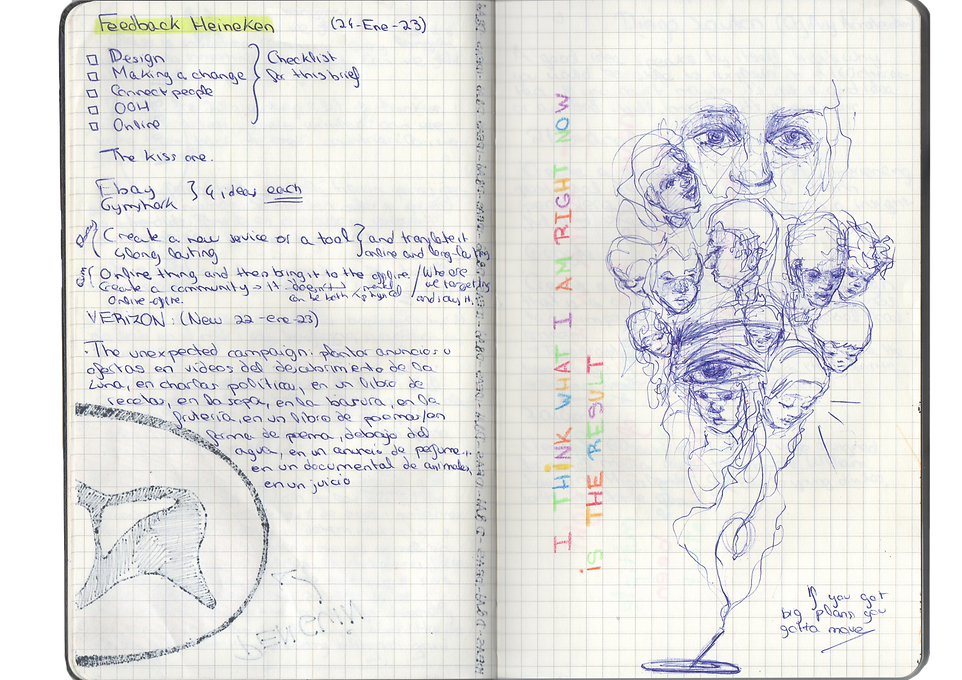 Feedback Heineken (24-Ene-23)
Design
Making a change
Connect people
OOH
Online
Checklist
for this brief
The kiss one.
Ebay
Gymshark
4 ideas each
Create a new service or a tool
Strong lasting
and translate it
online and long-lasting
Online thing and then bring it to the offline.
Create a community → it doesn't
Online-offline.
can be both + physical
Who are
we targeting
and say it.
VERIZON: (New 22-ene-23)
·The unexpected campaign: plantar anuncios u
ofertas en videos del descubrimiento de la
Luna, en charlas políticas, en un libro de
recetas, en la sopa, en la basura, en la
frutería, en un libro de poemas/en
forma de poema, debajo del
agua, en un anuncio de perfume...
en un documental de animales,
en un juicio
I THINK WHAT I AM RIGHT NOW
is THE RESULT
If you got
big plans you
gotta move